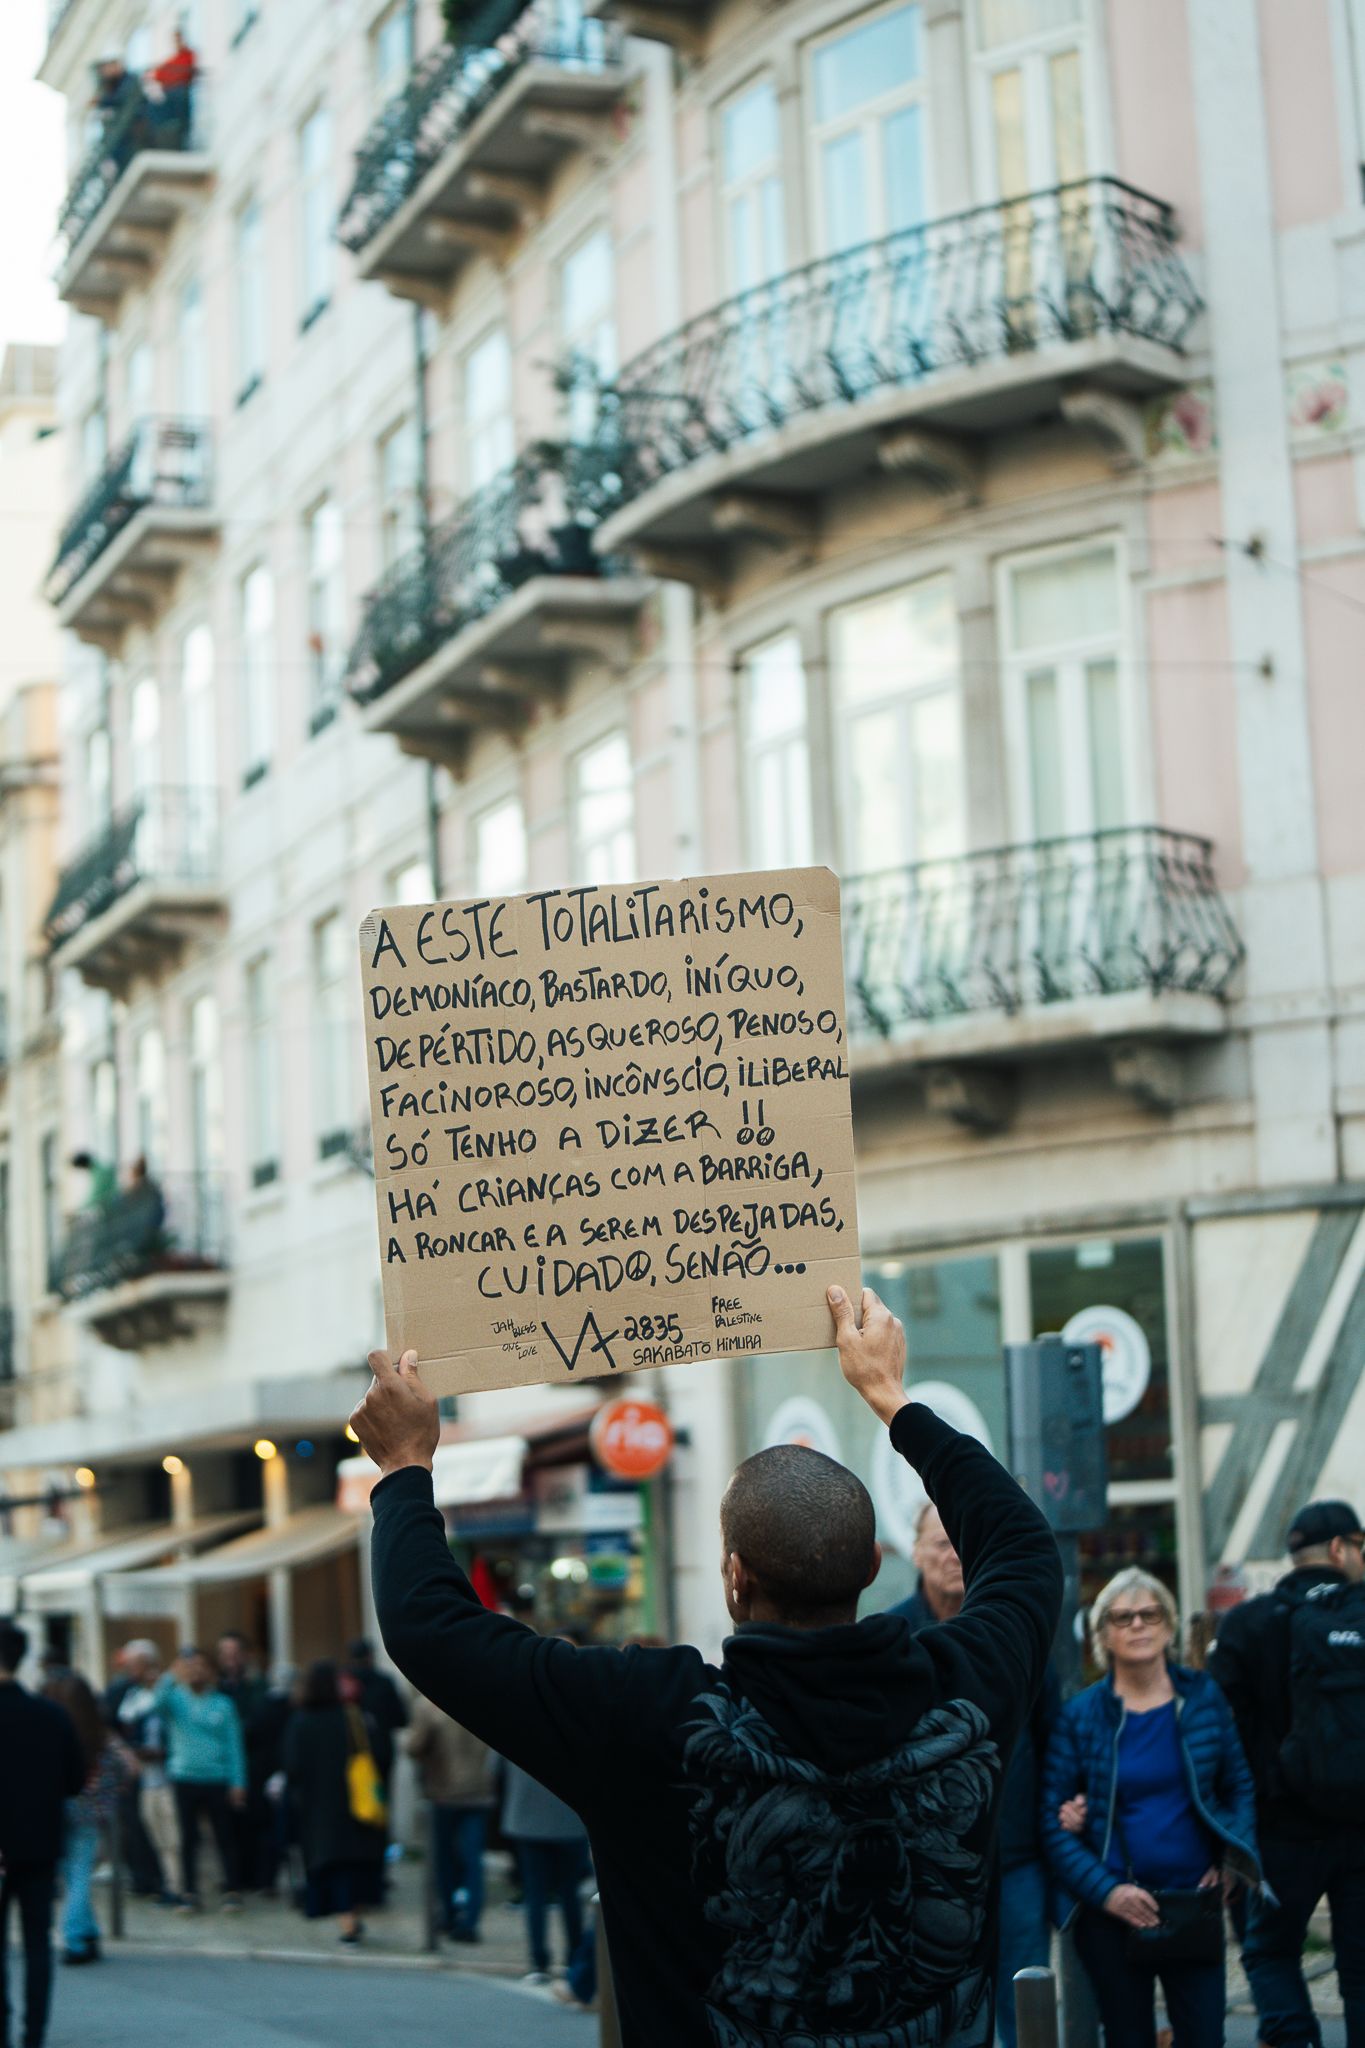 A ESTE TOTALITARISMO,
DEMONÍACO, BASTARDO, INÍQUO,
DEPÉRTIDO, ASQUEROSO, PENOSO,
FACINOROSO, INCÔNSCIO, ILIBERAL
SÓ TENHO A DIZER !!
HÁ CRIANÇAS COM A BARRIGA,
A RONCAR E A SEREM DESPEJADAS,
CUIDADO, SENÃO...
JAH BLESS
ONE LOVE
VA 2835
SAKABATŌ HIMURA
FREE
PALESTINE
rio